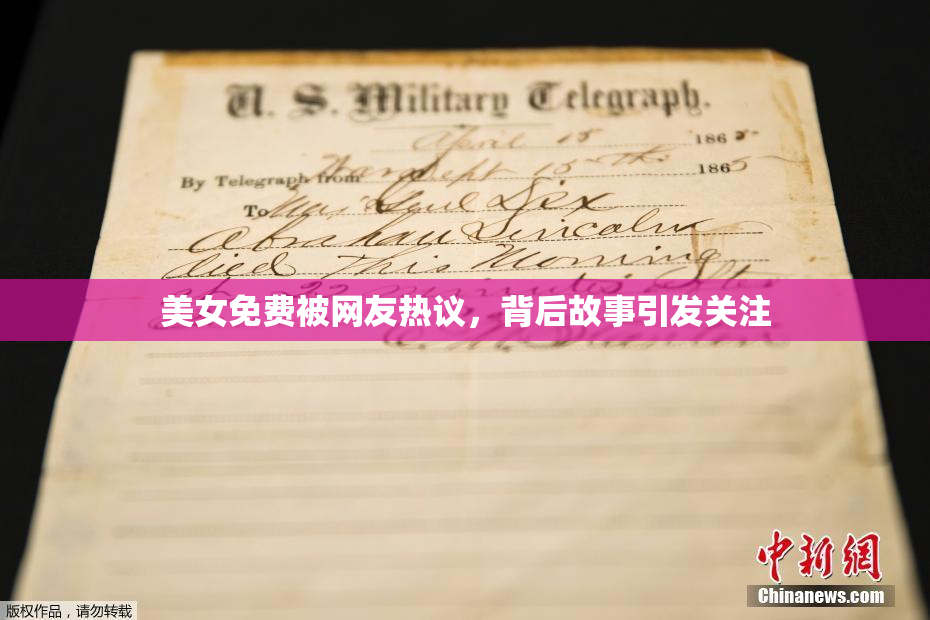 U. S. Military Telegraph.
April 15 1865
By Telegraph from War Dept 15th 1865
To Maj Genl Dix
Abraham Lincoln
died This Morning
at 22 minutes after
美女免费被网友热议，背后故事引发关注
E. M. Stanton
中新网
Chinanews.com
版权作品，请勿转载